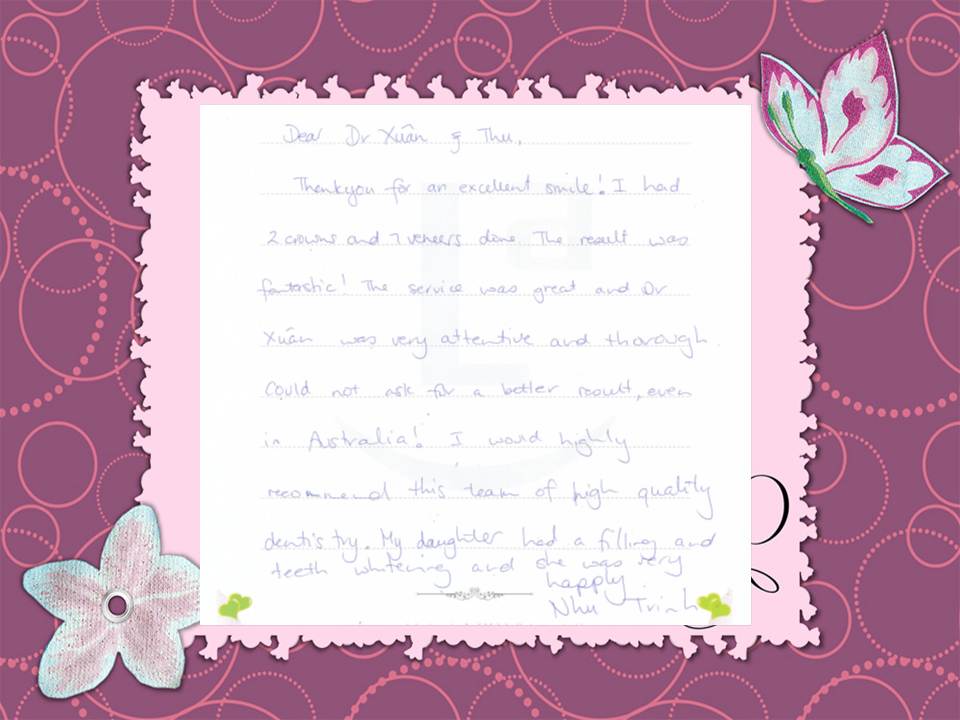 Dear Dr Xuân & Thu,
Thankyou for an excellent smile! I had
2 crowns and 7 veneers done. The result was
fantastic! The service was great and Dr
Xuân was very attentive and thorough.
Could not ask for a better result, even
in Australia! I would highly
recommend this team of high quality
dentistry. My daughter had a filling and
teeth whitening and she was very
happy.
Nhu Trinh